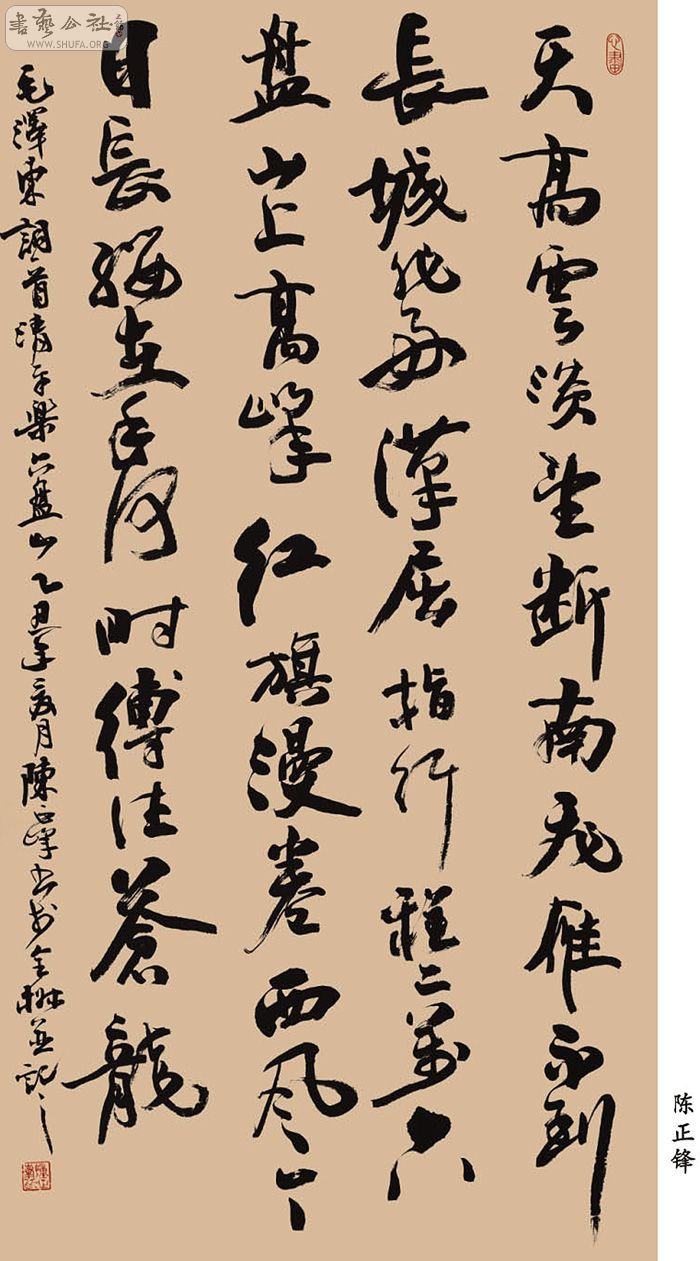 天高雲淡望斷南飛雁不到
長城非好漢屈指行程二萬六
盘山上高峰红旗漫卷西风今
日長纓在手何时縛住蒼龍
毛澤東詞首清平樂六盘山乙丑年月陳正峰书於並記之
陈正锋
書藝公社
WWW.SHUFA.ORG